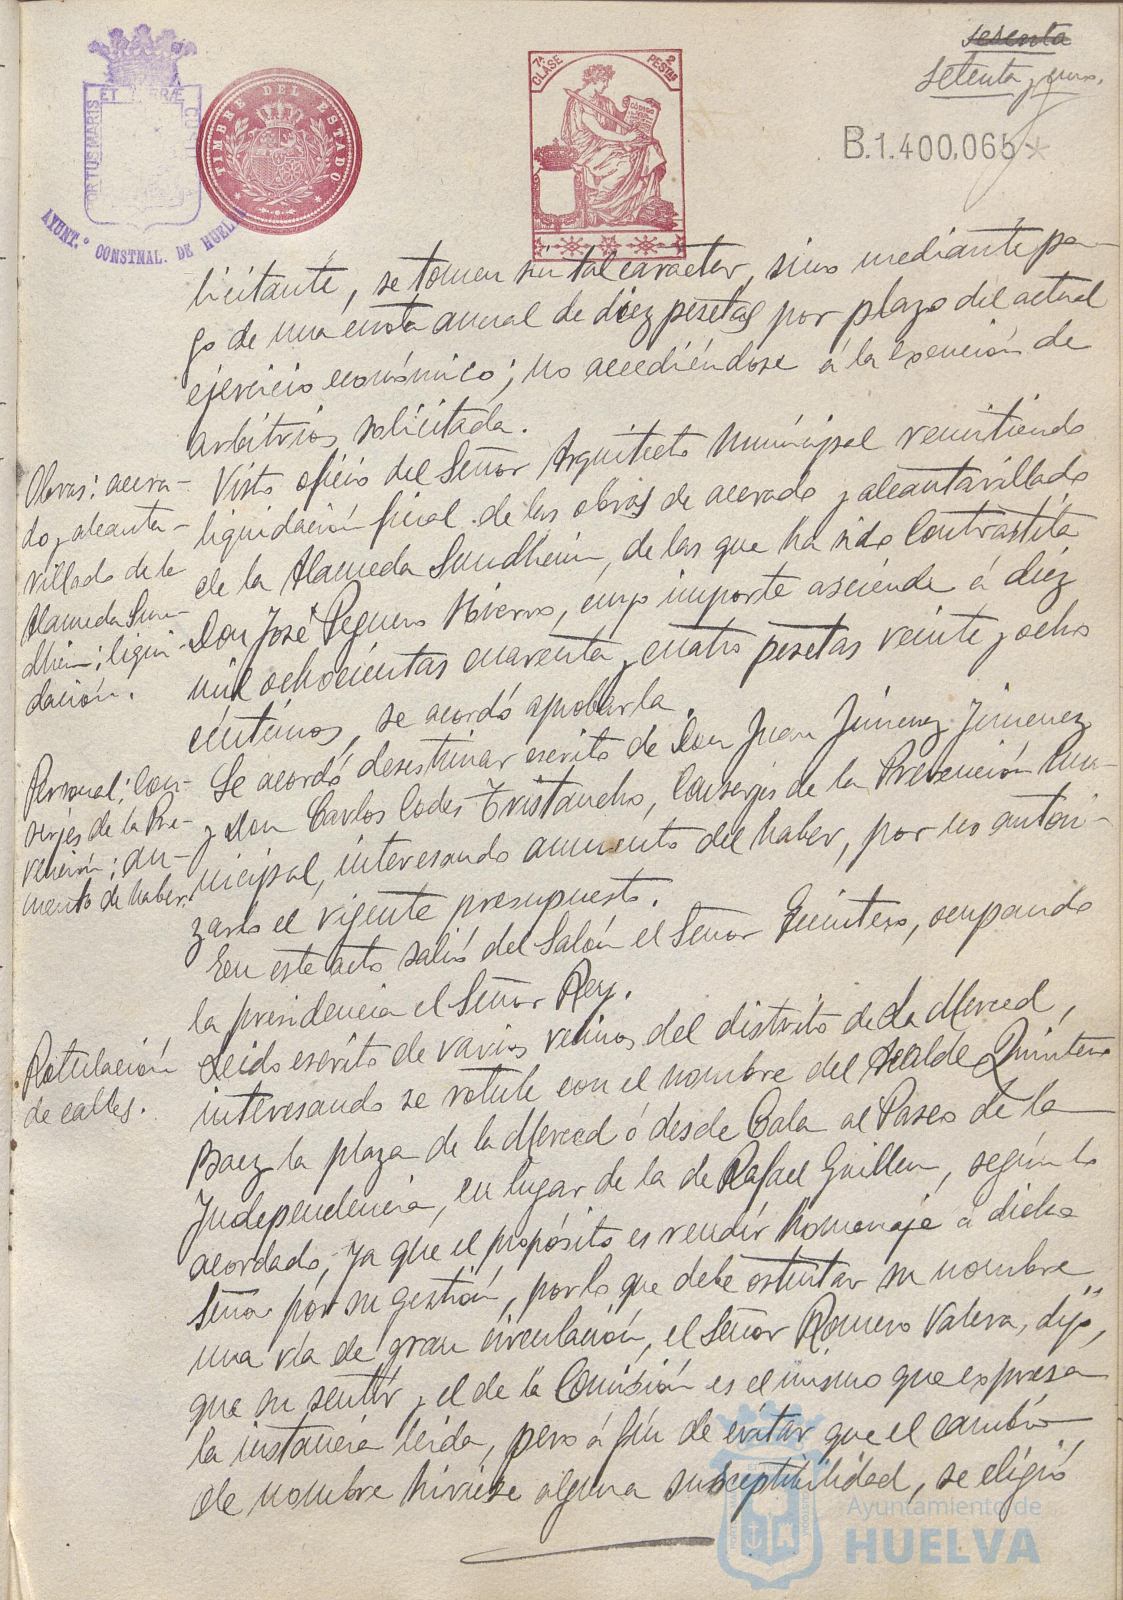 sesenta
setenta y uno.
PORTUS MARIS ET TERRÆ CUSTODIA
AYUNT.º CONSTNAL. DE HUELVA
TIMBRE DEL ESTADO
7ª CLASE
2 PESETAS
B.1.400,065*
licitante, se tomen sin tal caracter, sino mediante pa-
go de una cuota anual de diez pesetas por plazo del actual
ejercicio económico; no accediéndose á la exención de
arbitrios solicitada.
Obras: acera-
do y alcanta-
rillado de la
Alameda Sun-
dheim; liqui-
dación.
Visto oficio del Señor Arquitecto Municipal remitiendo
liquidación final de las obras de acerado y alcantarillado
de la Alameda Sundheim, de las que ha sido Contratista
Don José Peguero Hierro, cuyo importe asciende á diez
mil ochocientas cuarenta y cuatro pesetas veinte y ocho
céntimos, se acordó aprobarla.
Personal; con-
serjes de la Pre-
vención; au-
mento de haber.
Se acordó desestimar escrito de Don Juan Jimenez Jimenez
y Don Carlos Codes Tristancho, Conserjes de la Prevención Mu-
nicipal, interesando aumento del haber, por no autori-
zarlo el vigente presupuesto.
En este acto salió del Salón el Señor Quintero, ocupando
la presidencia el Señor Rey.
Rotulación
de calles.
Leido escrito de varios vecinos del distrito de La Merced,
interesando se rotule con el nombre del Alcalde Quintero
Baez la plaza de la Merced ó desde Cala al Paseo de la
Independencia, en lugar de la de Rafael Guillen, según lo
acordado, ya que el propósito es rendir homenaje á dicho
Señor por su gestión, por lo que debe ostentar su nombre
una vía de gran circulación, el Señor Romero Valera, dijo,
que su sentir y el de la Comisión es el mismo que expresa
la instancia leida, pero á fin de evitar que el cambio
de nombre hiriese alguna susceptibilidad, se eligió
Ayuntamiento de
HUELVA